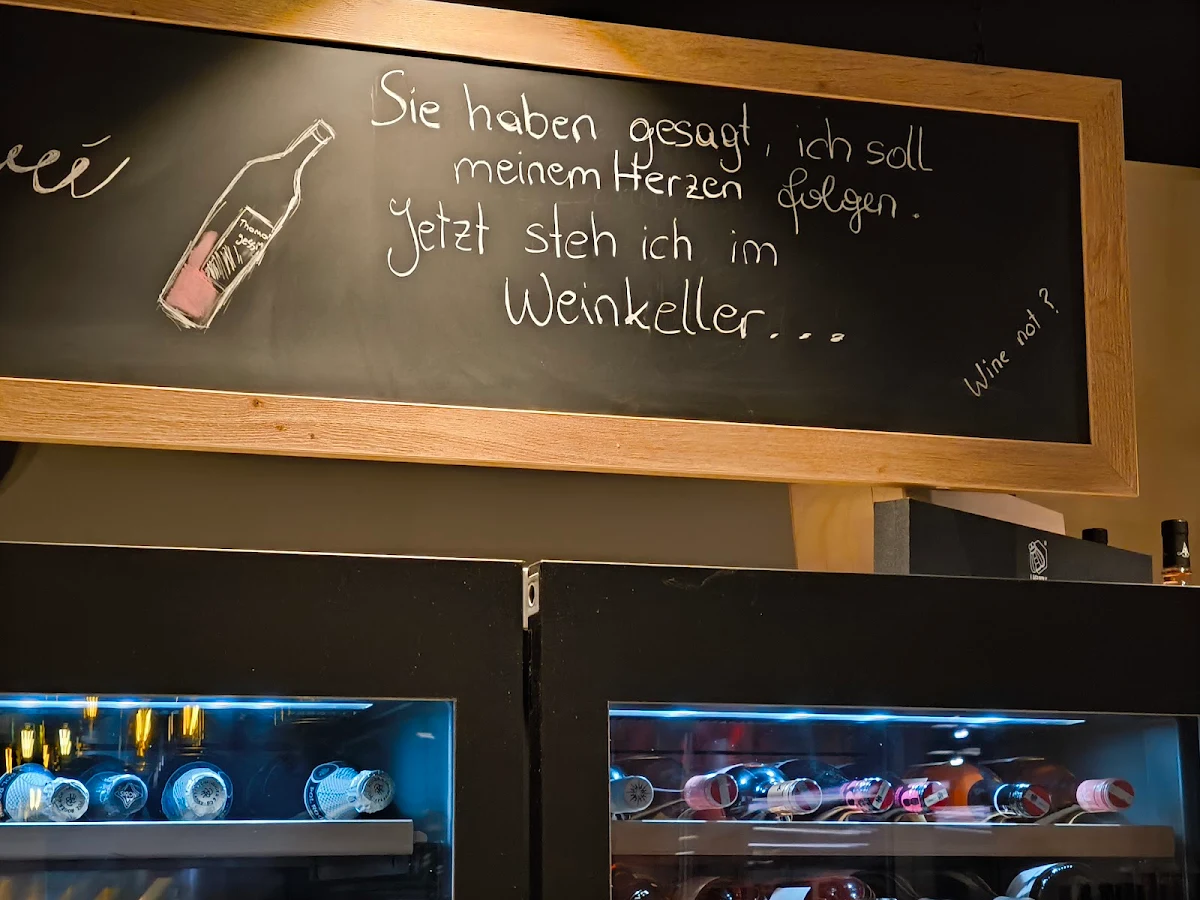 Sie haben gesagt, ich soll
meinem Herzen folgen.
Jetzt steh ich im
Weinkeller...
Wine not?